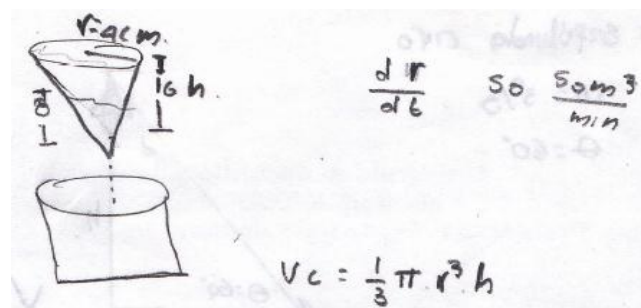 r=9cm.
16 h
8
dV/dt 50 50m³/min
Vc = 1/3 π. r³. h